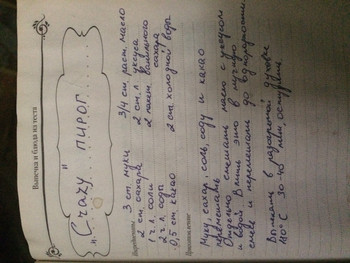 Выпечка и блюда из теста
"Crazy" пирог
Ингредиенты
3 ст. муки
2 ст. сахара
1 ч. л. соли
2 ч. л. сода
0,5 ст. какао
3/4 ст. раст. масло
2 ст. л. уксуса
2 пакет. ванильного
сахара
2 ст. холодной воды
Приготовление
Муку, сахар, соль, соду и какао
перемешать
Отдельно смешать масло с уксусом
и водой, влить это в мучную
смесь и перемешать до однородности
Выпекать в разогретой духовке
180°C 30-40 мин, остудить